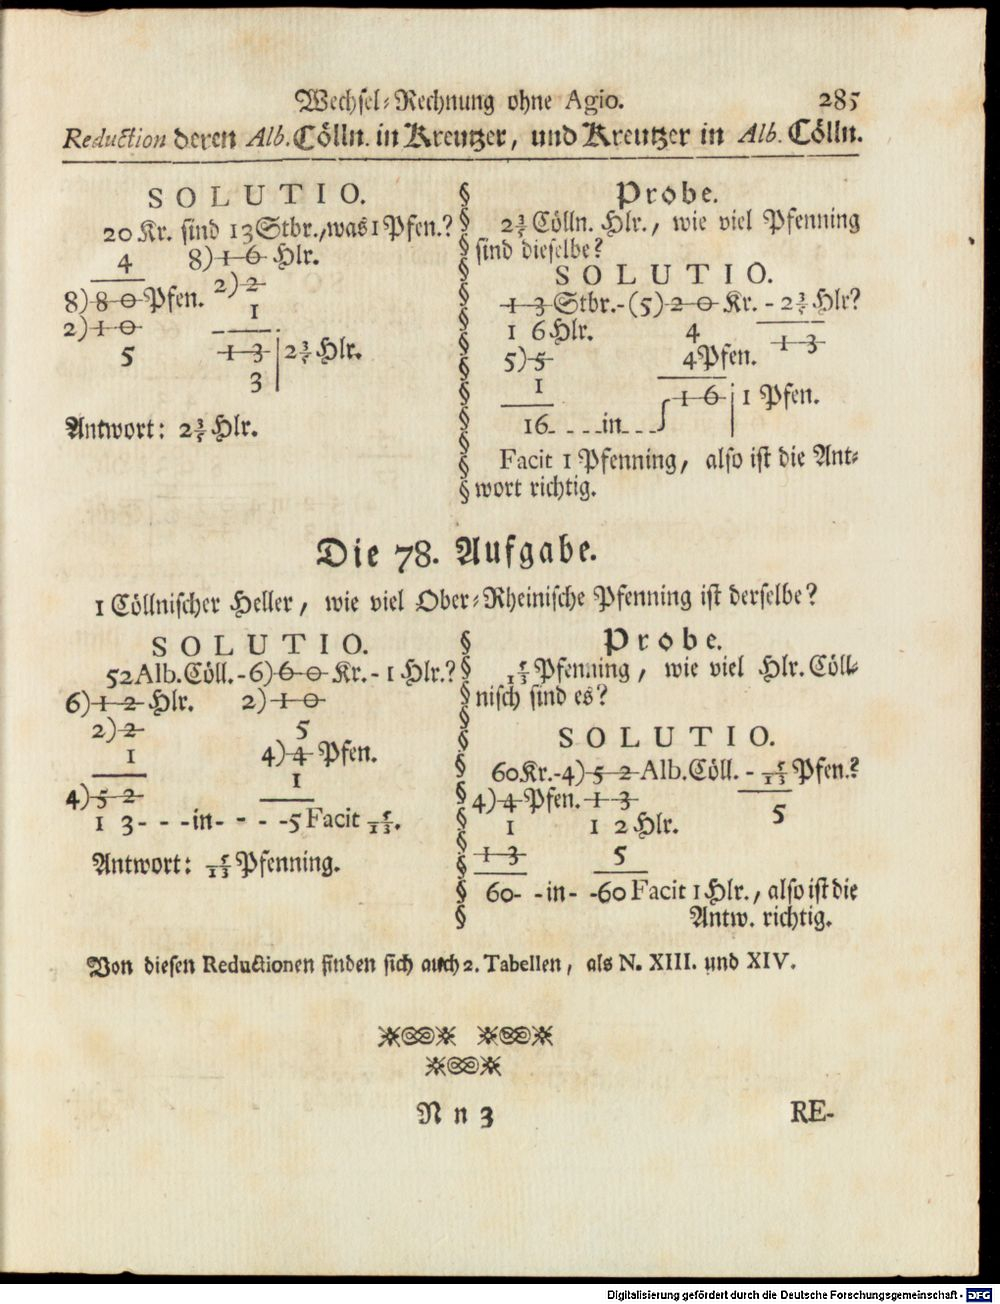 Wechsel-Rechnung ohne Agio. 285
Reduction deren Alb. Cölln. in Kreutzer, und Kreutzer in Alb. Cölln.
SOLUTIO.
20 Kr. sind 13 Stbr., was 1 Pfen.?
4 8) 16 Hlr.
8) 80 Pfen. 2) 2
2) 10 1
5 13 | 2 3/5 Hlr.
3
Antwort: 2 3/5 Hlr.
Probe.
2 3/5 Cölln. Hlr., wie viel Pfenning
sind dieselbe?
SOLUTIO.
13 Stbr.-(5) 20 Kr. - 2 3/5 Hlr?
16 Hlr. 4 13
5) 5 4 Pfen.
1 16 | 1 Pfen.
16 - - - - in - -
Facit 1 Pfenning, also ist die Ant-
wort richtig.
Die 78. Aufgabe.
1 Cöllnischer Heller, wie viel Ober-Rheinische Pfenning ist derselbe?
SOLUTIO.
52 Alb. Cöll. - 6) 60 Kr. - 1 Hlr.?
6) 12 Hlr. 2) 10
2) 2 5
1 4) 4 Pfen.
4) 52 1
13 - - - in - - - - 5 Facit 5/13.
Antwort: 5/13 Pfenning.
Probe.
5/13 Pfenning, wie viel Hlr. Cöll-
nisch sind es?
SOLUTIO.
60 Kr.-4) 52 Alb. Cöll. - 5/13 Pfen.?
4) 4 Pfen. 13 5
1 12 Hlr.
13 5
60 - - in - - 60 Facit 1 Hlr., also ist die
Antw. richtig.
Von diesen Reductionen finden sich auch 2. Tabellen, als N. XIII. und XIV.
N n 3 RE-
Digitalisierung gefördert durch die Deutsche Forschungsgemeinschaft - DFG